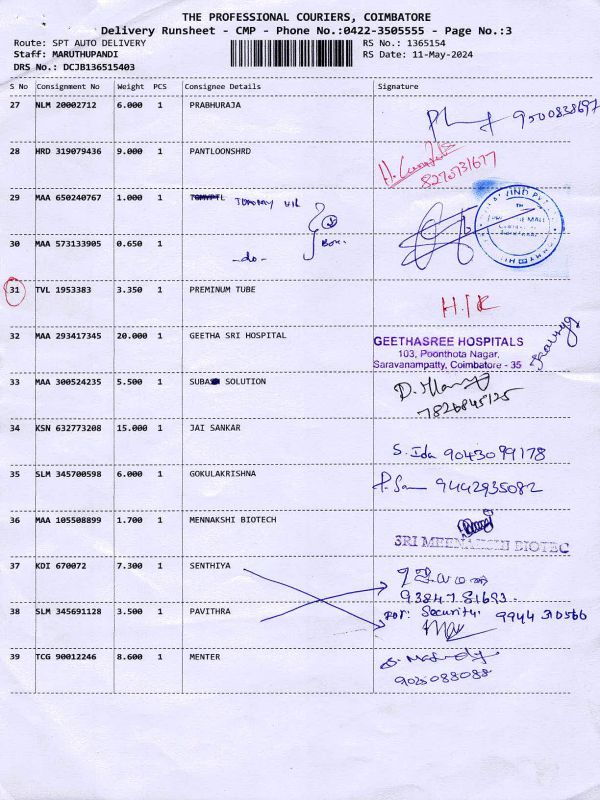 THE PROFESSIONAL COURIERS, COIMBATORE
Delivery Runsheet - CMP - Phone No.:0422-3505555 - Page No.:3
Route: SPT AUTO DELIVERY RS No.: 1365154
Staff: MARUTHUPANDI RS Date: 11-May-2024
DRS No.: DCJB136515403
S No Consignment No Weight PCS Consignee Details Signature
27 NLM 20002712 6.000 1 PRABHURAJA
9500838697
28 HRD 319079436 9.000 1 PANTLOONSHRD
8270731677
29 MAA 650240767 1.000 1
30 MAA 573133905 0.650 1 -do- Box.
31 TVL 1953383 3.350 1 PREMINUM TUBE H.K
32 MAA 293417345 20.000 1 GEETHA SRI HOSPITAL GEETHASREE HOSPITALS
103, Poonthota Nagar,
Saravanampatty, Coimbatore - 35
33 MAA 300524235 5.500 1 SUBA SOLUTION
7826845125
34 KSN 632773208 15.000 1 JAI SANKAR
S. Ida 9043099178
35 SLM 345700598 6.000 1 GOKULAKRISHNA
9442935082
36 MAA 105508899 1.700 1 MENNAKSHI BIOTECH
SRI MEENAKSHI BIOTEC
37 KDI 670072 7.300 1 SENTHIYA
93847 81693.
38 SLM 345691128 3.500 1 PAVITHRA For: Security. 9944 310566
39 TCG 90012246 8.600 1 MENTER
9025088088